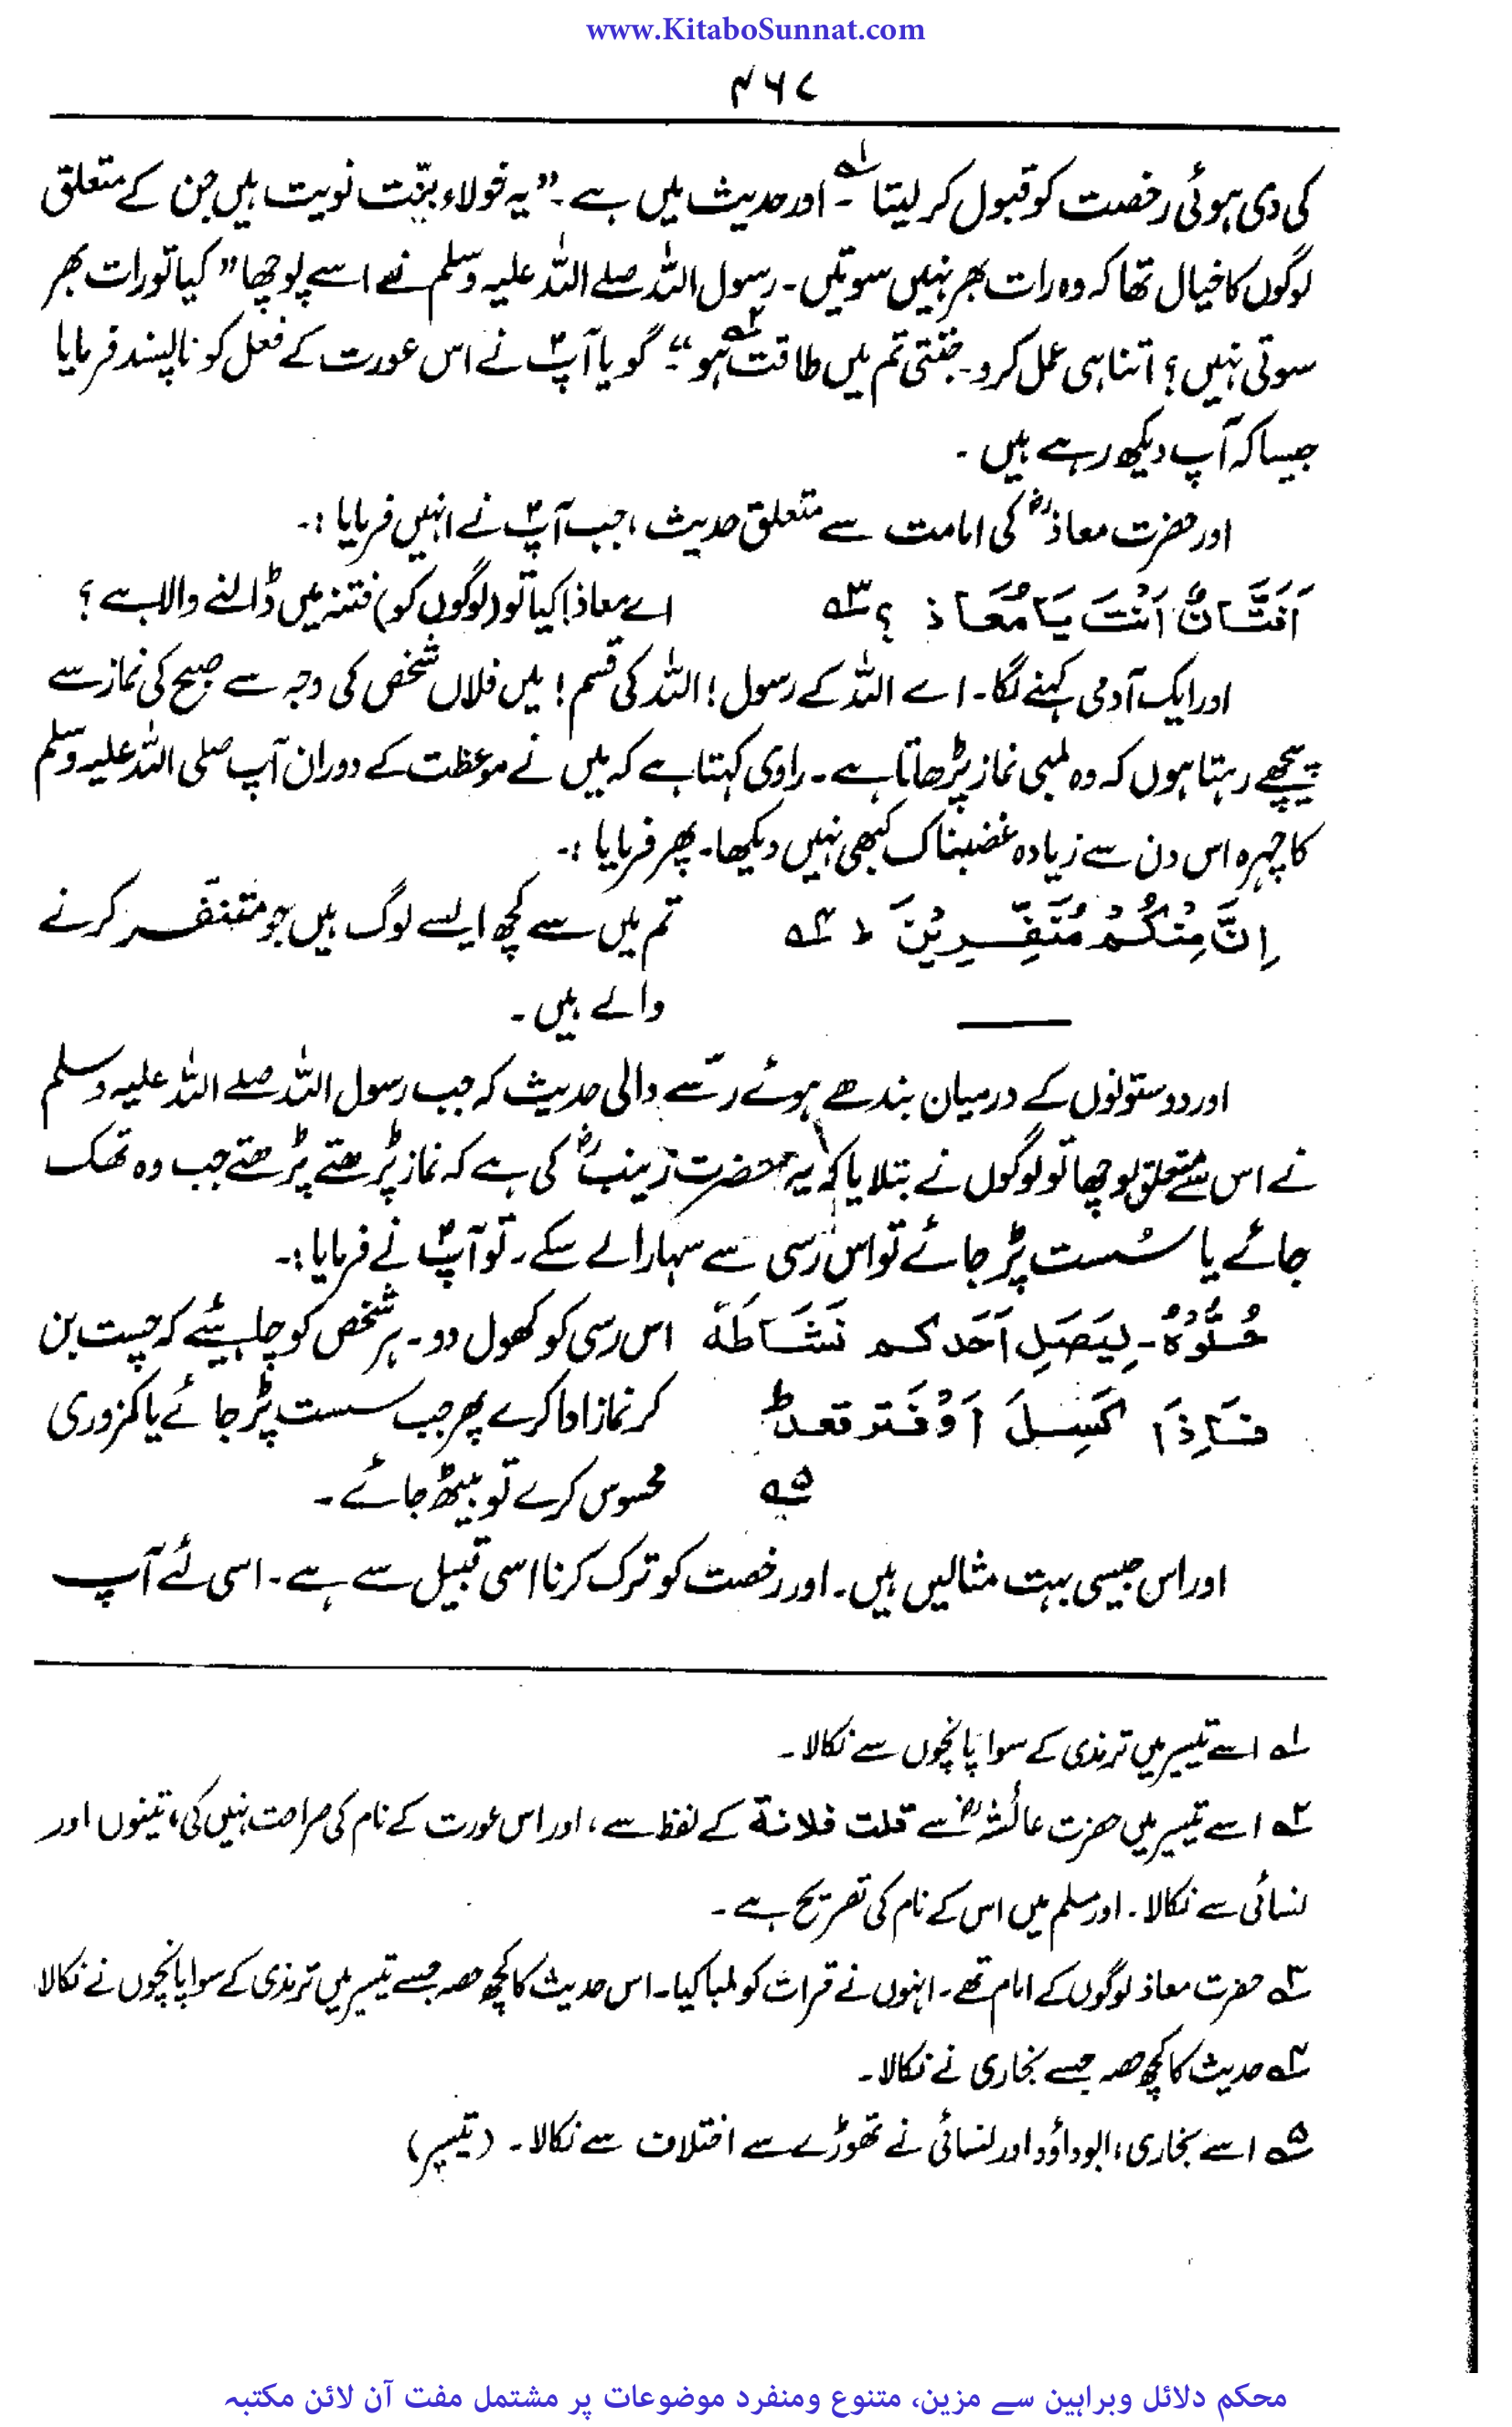 www.KitaboSunnat.com
۴۶۷
کی دی ہوئی رخصت کو قبول کر لیتا۱ھ ۔ اور حدیث میں ہے۔ ”یہ خولاء بنت نویت ہیں جن کے متعلق
لوگوں کا خیال تھا کہ وہ رات بھر نہیں سوتیں۔ رسول اللہ صلے اللہ علیہ وسلم نے اسے پوچھا ” کیا تو رات بھر
سوتی نہیں؟ اتنا ہی عمل کرو۔ جتنی تم میں طاقت ہو۲ھ“ گویا آپؐ نے اس عورت کے فعل کو ناپسند فرمایا
جیسا کہ آپ دیکھ رہے ہیں ۔
اور حضرت معاذؓ کی امامت سے متعلق حدیث ، جب آپؐ نے انہیں فرمایا :۔
اَفَتَّانٌ اَنْتَ یَا مُعَاذ ؟ ۳ھ اے معاذ! کیا تو (لوگوں کو) فتنہ میں ڈالنے والا ہے ؟
اور ایک آدمی کہنے لگا۔ اے اللہ کے رسول! اللہ کی قسم! میں فلاں شخص کی وجہ سے صبح کی نماز سے
پیچھے رہتا ہوں کہ وہ لمبی نماز پڑھاتا ہے۔ راوی کہتا ہے کہ میں نے موعظت کے دوران آپ صلی اللہ علیہ وسلم
کا چہرہ اس دن سے زیادہ غضبناک کبھی نہیں دیکھا۔ پھر فرمایا :۔
اِنَّ مِنْکُمْ مُنَفِّرِیْنَ ۴ھ تم میں سے کچھ ایسے لوگ ہیں جو متنفّر کرنے
والے ہیں ۔
اور دو ستونوں کے درمیان بندھے ہوئے رسّے والی حدیث کہ جب رسول اللہ صلے اللہ علیہ وسلم
نے اس سے متعلق پوچھا تو لوگوں نے بتلایا کہ یہ حضرت زینبؓ کی ہے کہ نماز پڑھتے پڑھتے جب وہ تھک
جائے یا سُست پڑ جائے تو اس رسی سے سہارا لے سکے۔ تو آپؐ نے فرمایا :۔
حُلُّوْہُ۔ لِیَصَلِ اَحَدکم نَشَاطَہ اس رسی کو کھول دو۔ ہر شخص کو چاہیئے کہ چست بن
فَاِذَا کَسِلَ اَوْ فَتَر قعد کر نماز ادا کرے پھر جب سست پڑ جائے یا کمزوری
۵ھ محسوس کرے تو بیٹھ جائے ۔
اور اس جیسی بہت مثالیں ہیں۔ اور رخصت کو ترک کرنا اسی قبیل سے ہے۔ اسی لئے آپ
۱ھ اسے تیسیر میں ترمذی کے سوا پانچوں سے نکالا ۔
۲ھ اسے تیسیر میں حضرت عائشہؓ سے قلت فلانۃ کے لفظ سے، اور اس عورت کے نام کی صراحت نہیں کی، تینوں اور
نسائی سے نکالا۔ اور مسلم میں اس کے نام کی تصریح ہے ۔
۳ھ حضرت معاذ لوگوں کے امام تھے۔ انہوں نے قرات کو لمبا کیا۔ اس حدیث کا کچھ حصہ جسے تیسیر میں ترمذی کے سوا پانچوں نے نکالا
۴ھ حدیث کا کچھ حصہ جسے بخاری نے نکالا۔
۵ھ اسے بخاری، ابوداؤد اور نسائی نے تھوڑے سے اختلاف سے نکالا ۔ (تیسیر)
محکم دلائل وبراہین سے مزین، متنوع ومنفرد موضوعات پر مشتمل مفت آن لائن مکتبہ